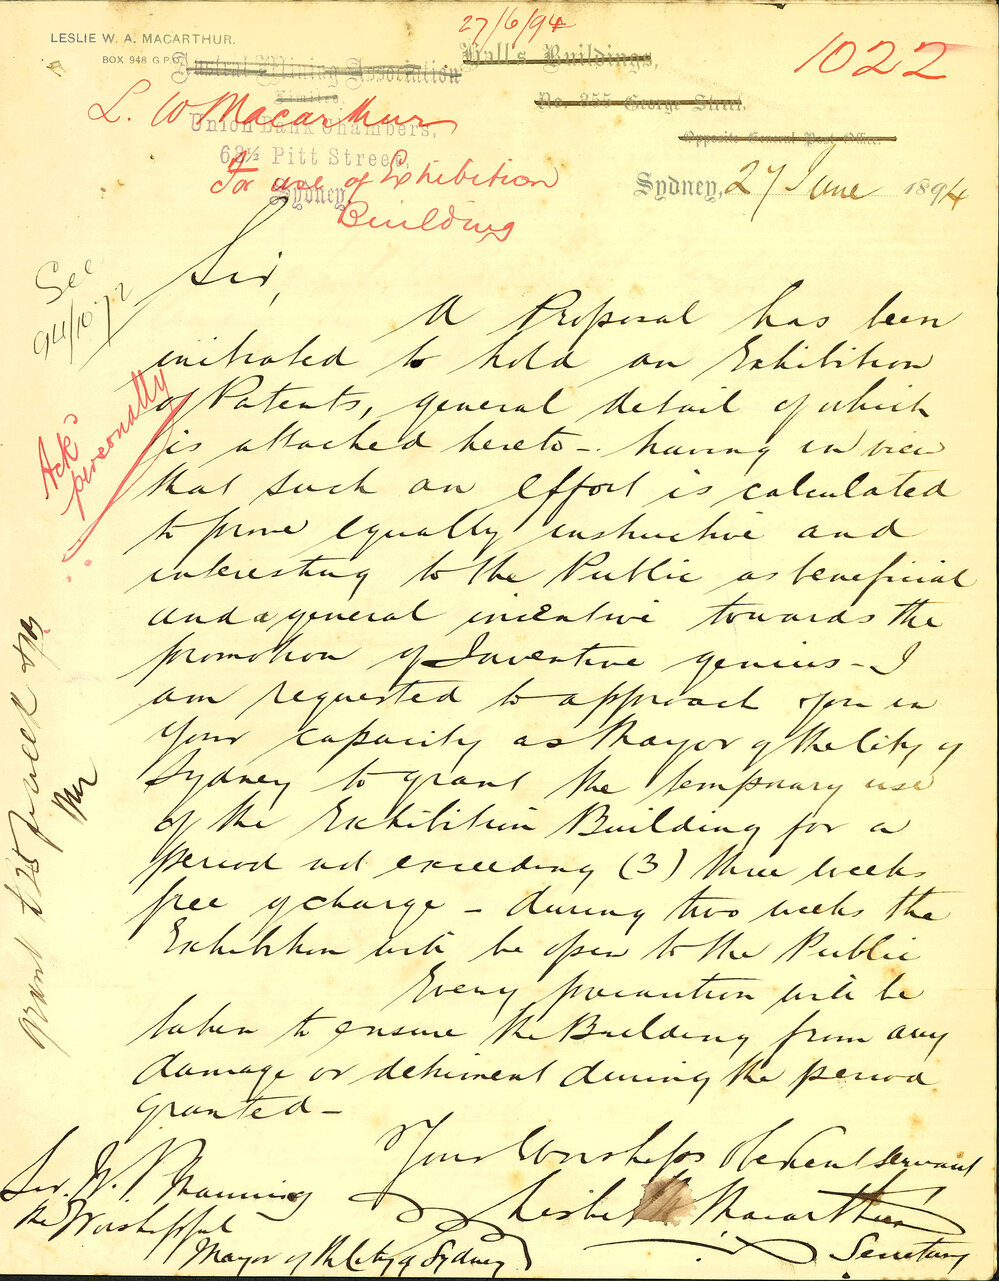 27/6/94
LESLIE W. A. MACARTHUR.
BOX 948 G.P.O.
Austral Mining Association
Limited
Hall's Buildings,
No 355 George Street,
Opposite General Post Office.
1022
L. W Macarthur
Union Bank Chambers,
68½ Pitt Street,
Sydney
For use of Exhibition
Building
Sydney, 27 June 1894
See
94/1072
Ackd
personally
Sir,
A Proposal has been
initiated to hold an Exhibition
of Patents, general detail of which
is attached hereto - having in view
that such an effort is calculated
to prove equally instructive and
interesting to the Public as beneficial
and a general incentive towards the
promotion of Inventive genius - I
am requested to approach you in
your capacity as Mayor of the City of
Sydney to grant the temporary use
of the Exhibition Building for a
period not exceeding (3) three weeks
free of charge - during two weeks the
Exhibition will be open to the Public
Every precaution will be
taken to ensure the Building from any
damage or detriment during the period
granted -
Your Worships Obedient servant
Leslie W A Macarthur
Secretary
Sir. W. P. Manning
the Worshipful
Mayor of the City of Sydney